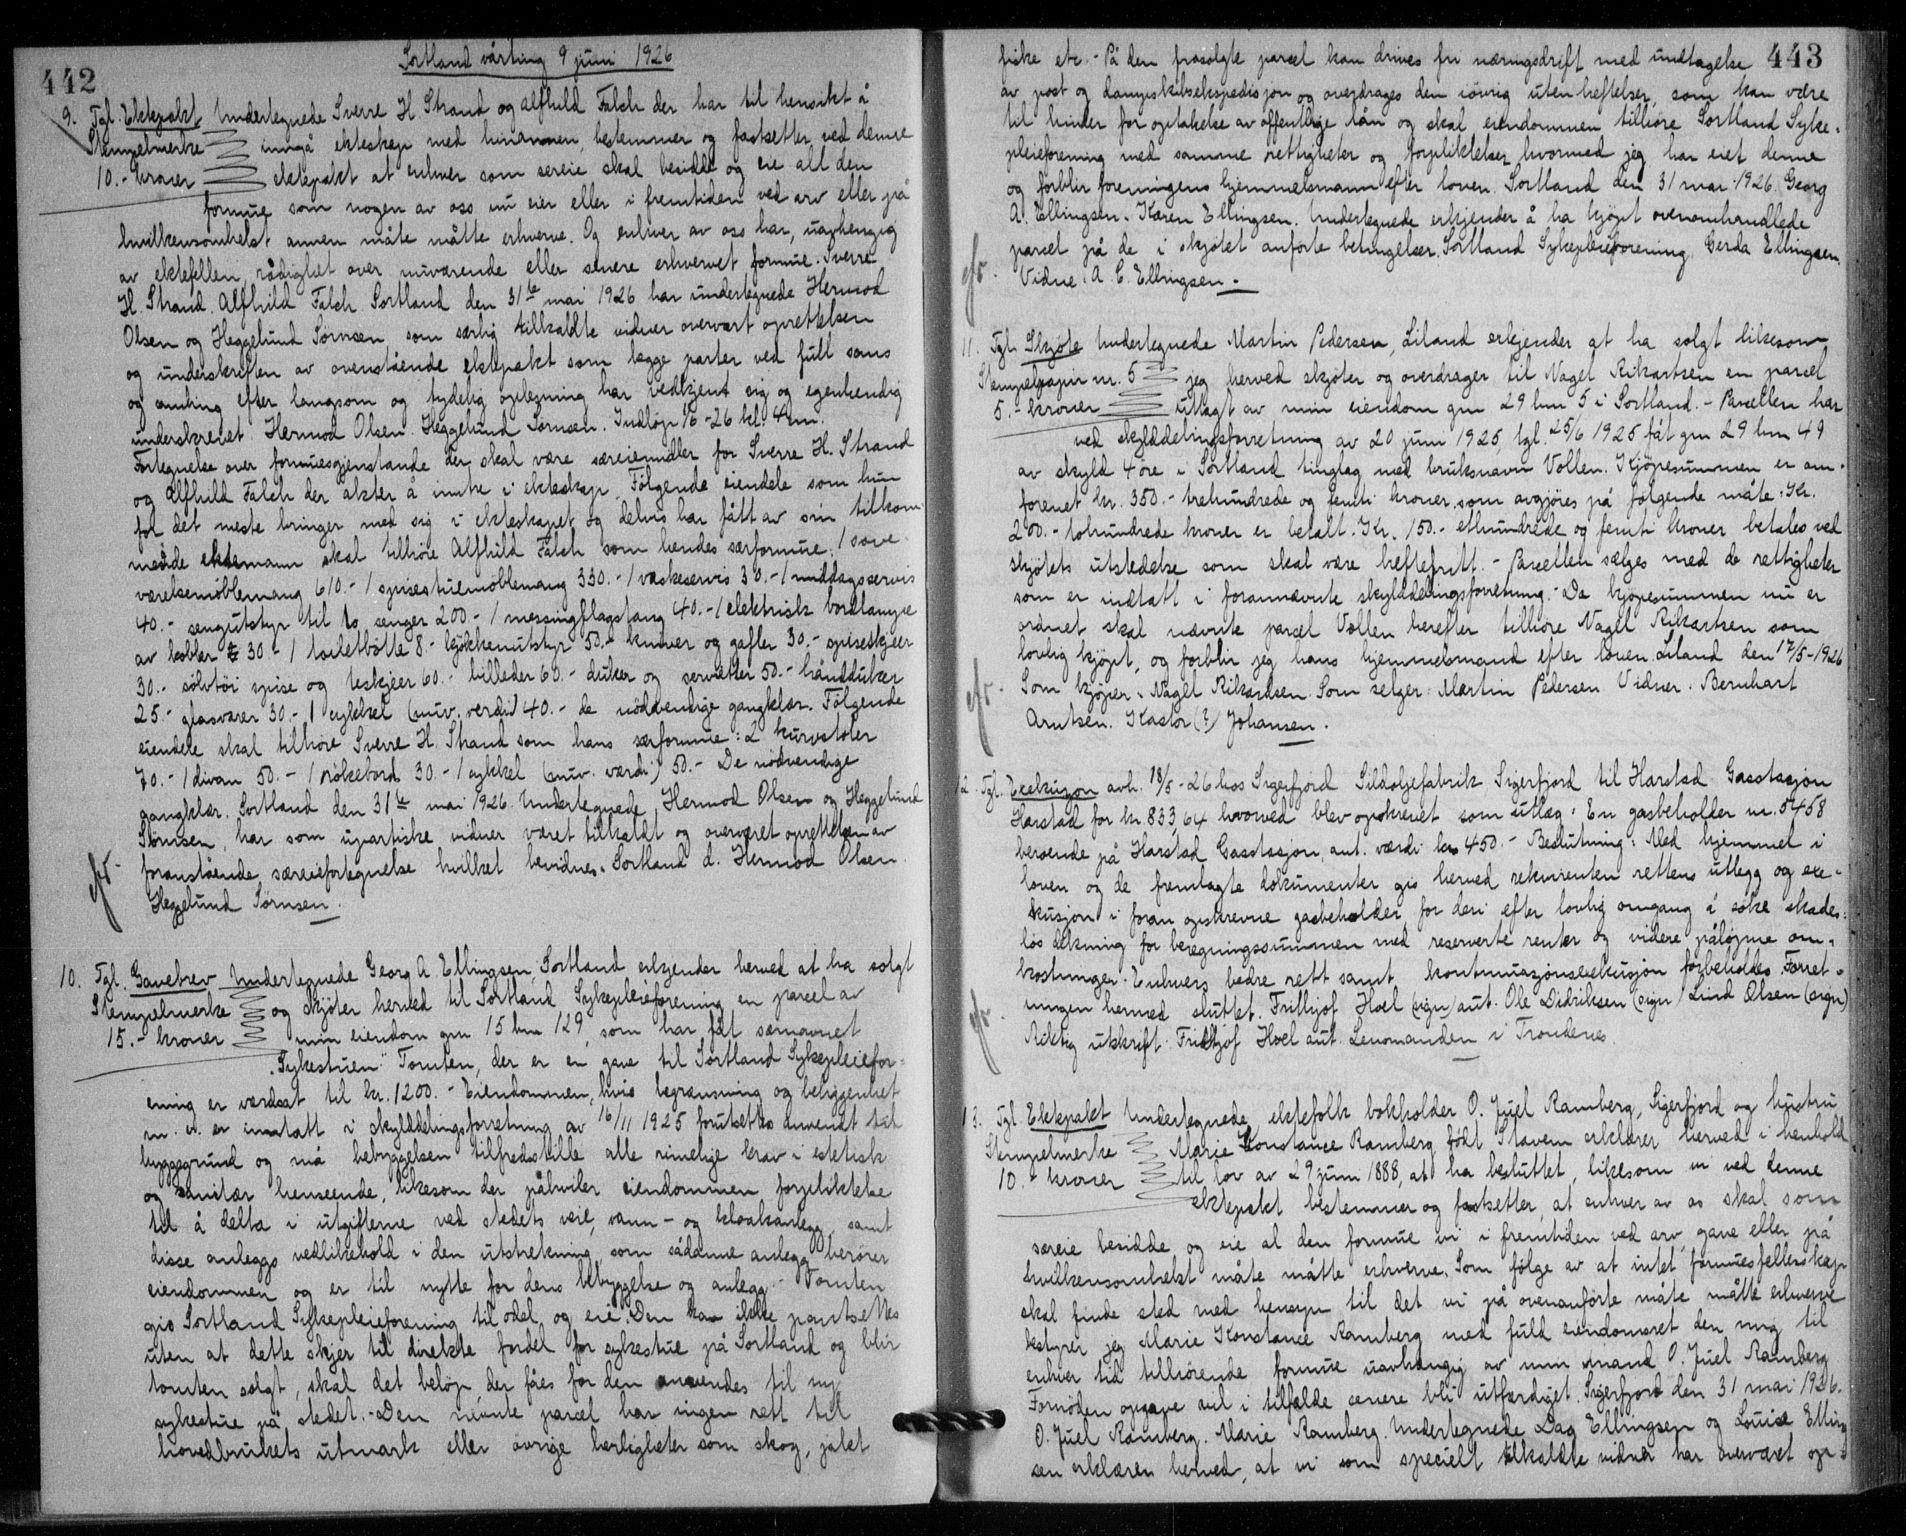 442
Sortland vårting 9 juni 1926
9. Tgl. Ektepakt Undertegnede Sverre H. Strand og Alfhild Falch der har til hensikt å
Stempelmerke inngå ekteskap med hinannen, bestemmer og fastsetter ved denne
10.- kroner ektepakt at enhver som særeie skal besidde og eie all den
formue som nogen av oss nu eier eller i fremtiden ved arv eller på
hvilkensomhelst annen måte måtte erhverve. Og enhver av oss har, uavhengig
av ektefellen, rådighet over nuværende eller senere erhvervet formue. Sverre
H. Strand. Alfhild Falch. Sortland den 31te mai 1926 har undertegnede Hermod
Olsen og Heggelund Sørnsen som særlig tilkaldte vidner overvært oprettelsen
og underskriften av ovenstående ektepakt som begge parter ved full sans
og samling efter langsom og tydelig oplesning har vedkjent sig og egenhendig
underskrevet. Hermod Olsen. Heggelund Sørnsen. Indløp 1/6-26 kl. 4 em.
Fortegnelse over formuesgjenstande der skal være særeiemidler for Sverre H. Strand
og Alfhild Falch der akter å inntre i ekteskap. Følgende eiendele som hun
for det meste bringer med sig i ekteskapet og delvis har fått av sin tilkom-
mende ektemann skal tilhøre Alfhild Falch som hendes særformue: 1 sove-
værelsemöblemang 610.- 1 spisestuemöblemang 330.- 1 vaskeservis 30.- 1 middagsservis
40.- sengutstyr til to senger 200.- 1 messingflagstang 40.- 1 elektrisk bordlampe
av kobber 30.- 1 toiletbötte 8.- kjökkenutstyr 50.- kniver og gafler 30.- spiseskjeer
30.- sölvtöi spise og teskjeer 60.- billeder 60.- duker og servietter 50.- hånddukær
25.- glasvarer 30.- 1 cykkel (nuv. verdi) 40.- de nödvendige gangklær. Fölgende
eiendele skal tilhöre Sverre H. Strand som hans særformue: 2 kurvstoler
70.- 1 divan 50.- 1 rökebord 30.- 1 cykkel (nuv. værdi) 50.- De nödvendige
gangklær. Sortland den 31te mai 1926. Undertegnede, Hermod Olsen og Heggelund
Sörnsen, har som upartiske vidner været tilkaldt og overværet oprettelsen av
foranstående særeiefortegnelse hvilket bevidnes. Sortland d. Hermod Olsen.
Heggelund Sörnsen.
10. Tgl. Gavebrev Undertegnede Georg A. Ellingsen, Sortland erkjender herved at ha solgt
Stempelmerke og skjöter herved til Sortland Sykepleieforening en parcel av
15.- kroner min eiendom gnr 15 bnr 129, som har fåt særnavnet
"Sykestuen". Tomten, der er en gave til Sortland Sykepleiefor-
ening er værdsat til kr. 1200.- Eiendommen, hvis begrænsning og beliggenhet
m. v. er inntatt i skylddelingsforretning av 16/11 1925 forutsettes anvendt til
byggegrund og må bebyggelsen tilfredsstille alle rimelige krav i estetisk
og sanitær henseende, likesom der påhviler eiendommen forpliktelse
til å delta i utgifterne ved stedets veie, vann- og kloakanlegg samt
disse anleggs vedlikehold i den utstrekning som sådanne anlegg berörer
eiendommen og er til nytte for dens bebyggelse og anlegg. - Tomten
gis Sortland Sykepleieforening til odel og eie. Den kan ikke pantsettes
uten at dette skjer til direkte fordel for sykestue på Sortland og blir
tomten solgt, skal det belöp der fåes for den anvendes til ny
sykestue på stedet. - Den nevnte parcel har ingen rett til
hovedbrukets utmark eller övrige herligheter som skog, jakt
443
fiske etc. - På den frasolgte parcel kan drives fri næringsdrift med undtagelse
av post og dampskibsekspedisjon og overdrages den iövrig uten heftelser, som kan være
til hinder for optakelse av offentlige lån og skal eiendommen tilhöre Sortland Syke-
pleieforening med samme rettigheter og forpliktelser hvormed jeg har eiet denne
og forblir foreningens hjemmelsmann efter loven. Sortland den 31 mai 1926. Georg
A. Ellingsen. Karen Ellingsen. Undertegnede erkjender å ha kjöpt ovenomhandlede
parcel på de i skjötet anförte betingelser. Sortland Sykepleieforening. Gerda Ellingsen.
Vidne: A. C. Ellingsen.
11. Tgl. Skjöte Undertegnede Martin Pedersen, Liland erkjender at ha solgt likesom
Stempelpapir nr. 5 jeg herved skjöter og overdrager til Nagel Rikartsen en parcel
5.- kroner utlagt av min eiendom gnr 29 bnr 5 i Sortland. - Parcellen har
ved skylddelingsforretning av 20 juni 1925, tgl. 25/6 1925 fåt gnr 29 bnr 49
av skyld 4 öre i Sortland tinglag med bruksnavn Vollen. Kjöpesummen er om-
forenet kr. 350.- trehundrede og femti kroner som avgjöres på fölgende måte: Kr.
200.- tohundrede kroner er betalt. Kr. 150.- ethundrede og femti kroner betales ved
skjötets utstedelse som skal være heftefritt. - Parcellen sælges med de rettigheter
som er indtatt i forannævnte skylddelingsforretning. - Da kjöpesummen nu er
ordnet skal nævnte parcel Vollen herefter tilhöre Nagel Rikartsen som
lovlig kjöpt, og forblir jeg hans hjemmelsmand efter loven. Liland den 17/5-1926
Som kjöper: Nagel Rikardsen. Som selger: Martin Pedersen. Vidner: Bernhart
Arntsen. Kastor (?) Johansen.
12. Tgl. Exekusjon avh. 18/5-26 hos Sigerfjord Sildoljefabrik Sigerfjord til Harstad Gasstasjon
Harstad for kr. 833,64 hvorved blev opskrevet som utlæg: En gasbeholder nr. 5458
beroende på Harstad Gasstasjon, ant. værdi kr 450.- Beslutning: Med hjemmel i
loven og de fremlagte dokumenter gis herved rekvirenten rettens utlegg og exe-
kusjon i foran opskrevne gasbeholder for deri efter lovlig omgang å söke skades-
lös dekning for beregningssummen med reserverte renter og videre påløpne om-
kostninger. Enhvers bedre rett samt kontinuasjonsexekusjon forbeholdes. Forret-
ningen hermed sluttet. Fridthjof Hoel (sign) aut. Ole Didriksen (sign) Lind Olsen (sign)
Riktig utskrift. Fridthjof Hoel aut. Lensmanden i Trondenes.
13. Tgl. Ektepakt Undertegnede ektefolk bokholder O. Juel Ramberg, Sigerfjord og hustru
Stempelmerke Marie Konstance Ramberg födt Stavem erklærer herved i henhold
10.- kroner til lov av 29 juni 1888, at ha besluttet, likesom vi ved denne
ektepakt bestemmer og fastsetter, at enhver av os skal som
særeie besidde og eie al den formue vi i fremtiden ved arv, gave eller på
hvilkensomhelst måte måtte erhverve. Som fölge av at intet formuesfellesskap
skal finde sted med hensyn til det vi på ovenanförte måte måtte erhverve
bestyrer jeg Marie Konstance Ramberg med fuld eiendomsret den mig til
enhver tid tilhörende formue uavhængig av min mand O. Juel Ramberg.
Fornöden opgave vil i tilfælde senere bli utfærdiget. Sigerfjord den 31 mai 1926.
O. Juel Ramberg. Marie Ramberg. Undertegnede Dag Ellingsen og Louise Elling-
sen erklærer herved, at vi som specielt tilkaldte vidner har overværet op-